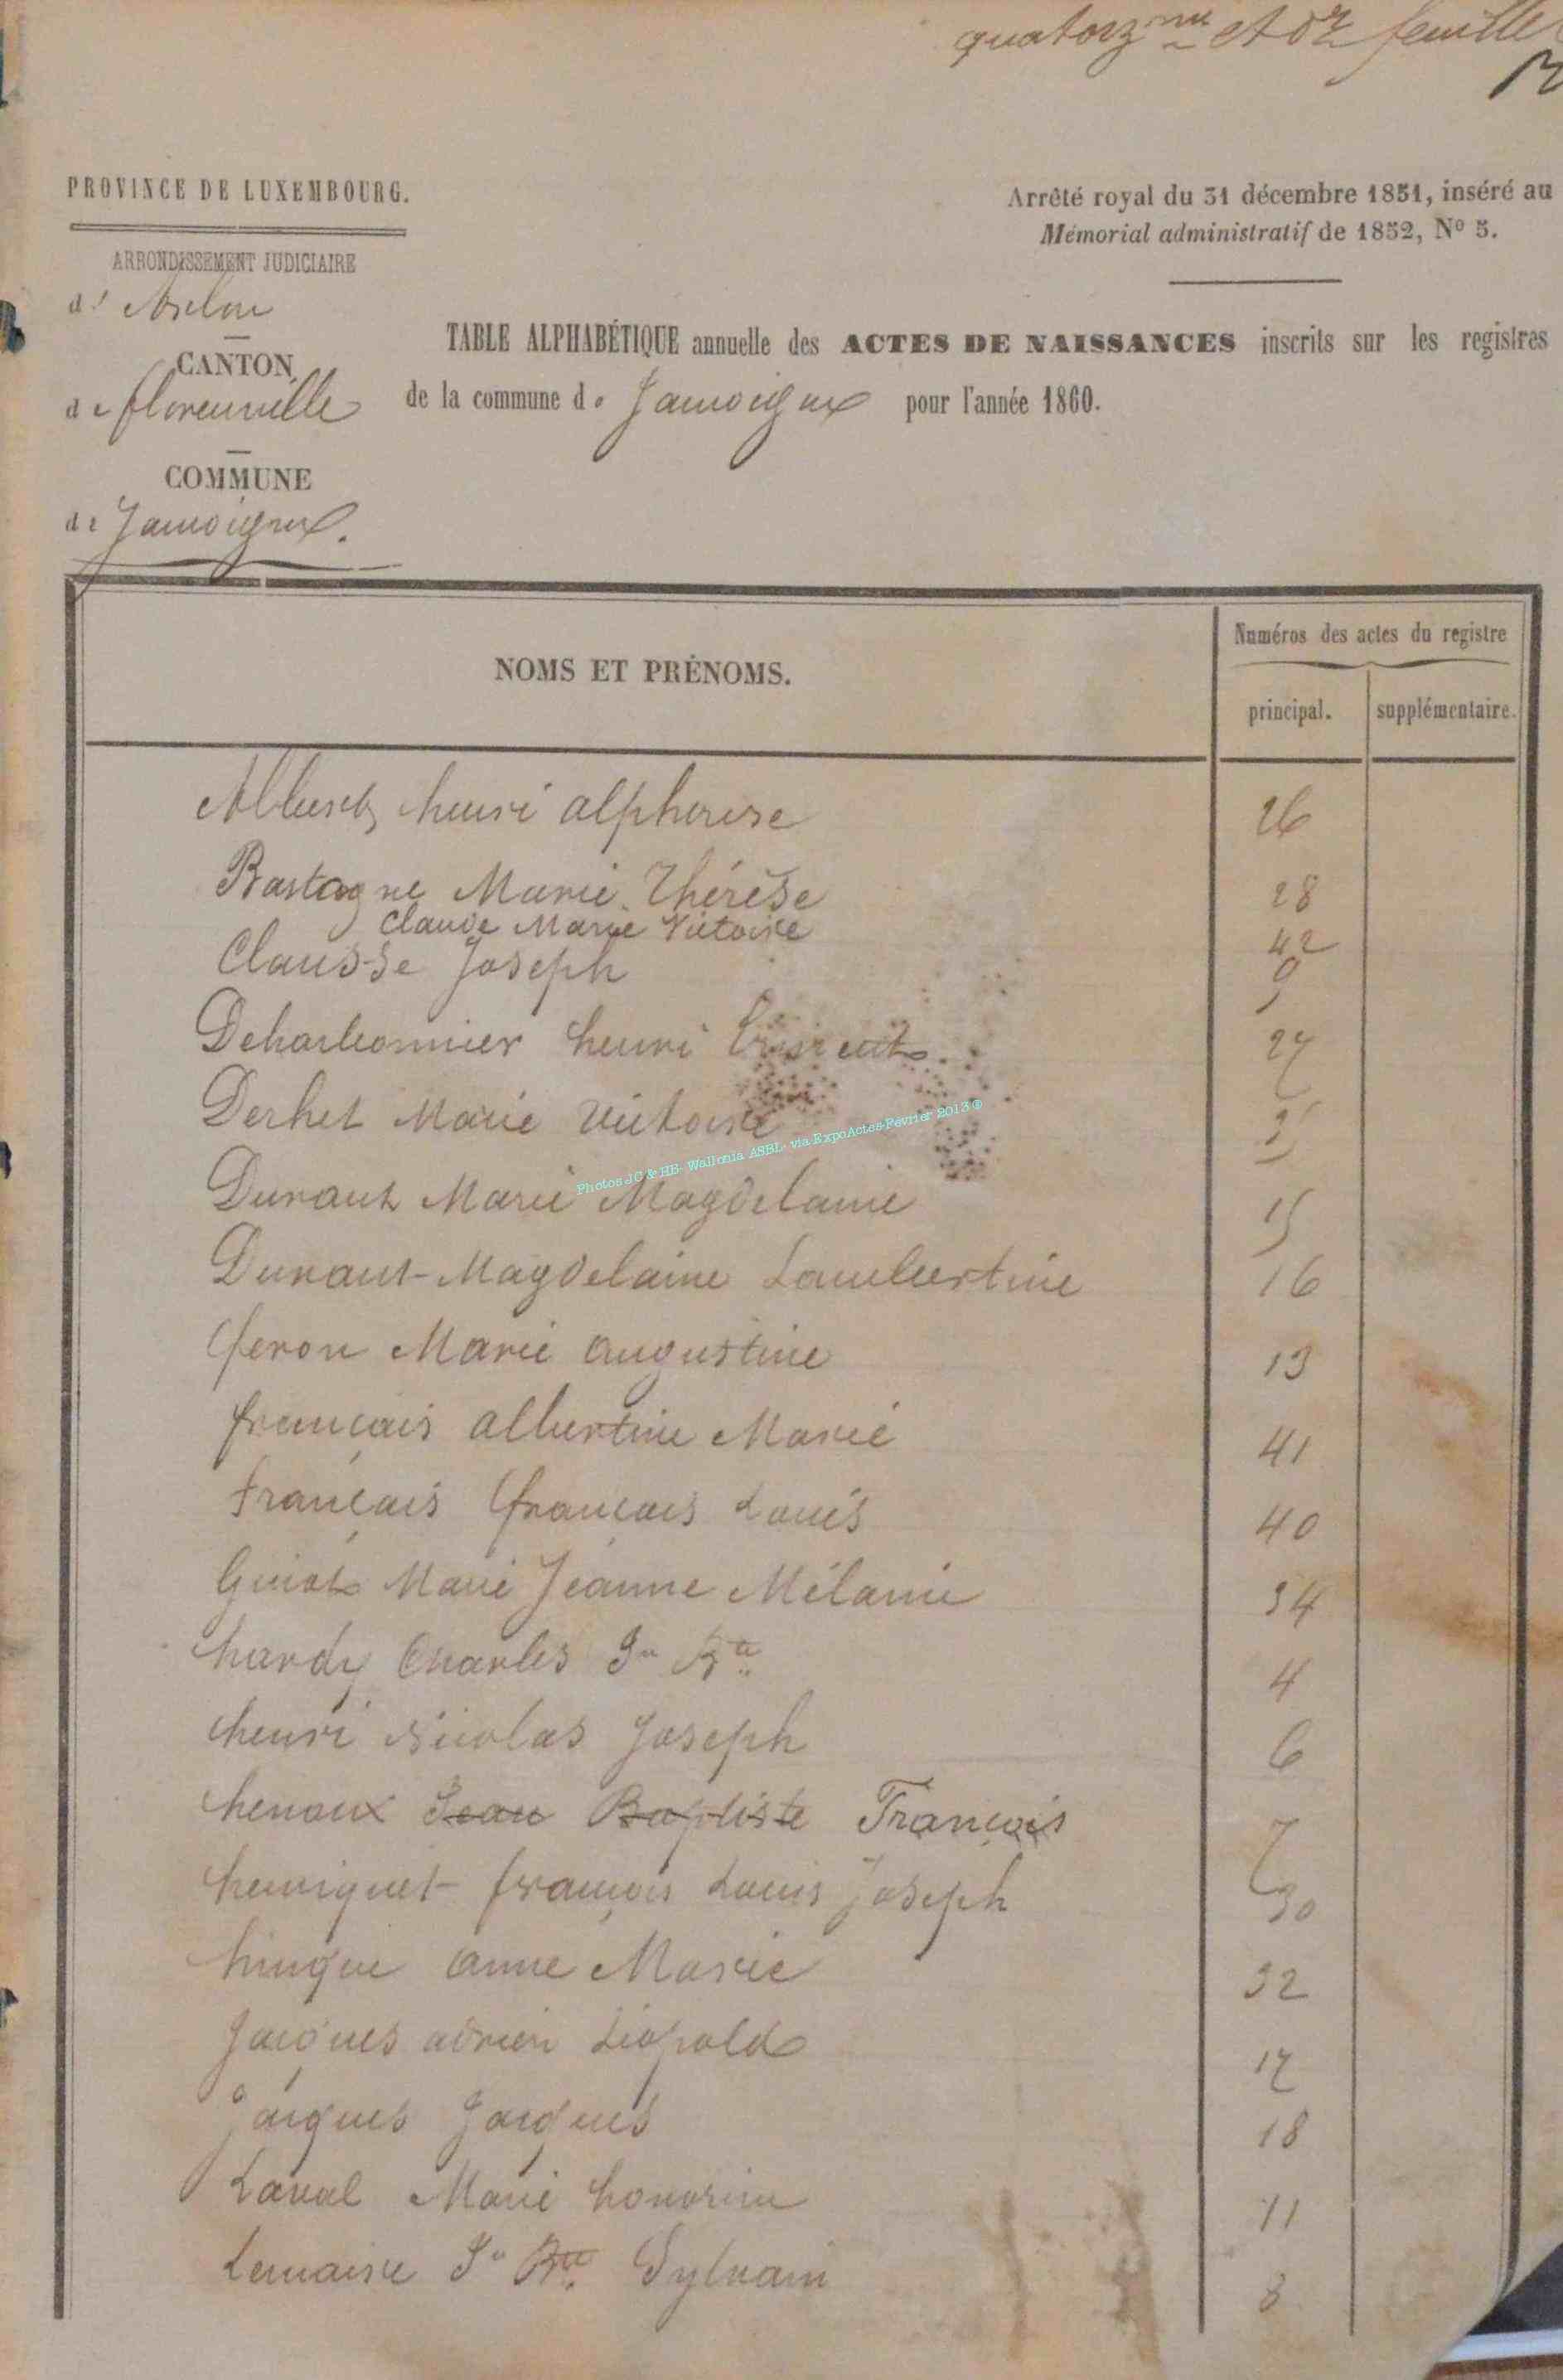 quatorz et dr feuille
PROVINCE DE LUXEMBOURG.
Arrêté royal du 31 décembre 1851, inséré au
Mémorial administratif de 1852, Nº 5.
ARRONDISSEMENT JUDICIAIRE
d' Arlon
CANTON
de florenville
COMMUNE
de Jamoigne.
TABLE ALPHABÉTIQUE annuelle des ACTES DE NAISSANCES inscrits sur les registres
de la commune de Jamoigne pour l'année 1860.
NOMS ET PRÉNOMS.
Numéros des actes du registre
principal. supplémentaire.
henri alphonse 26
Bastogne Marie Thérèse 28
Claude Marie Victoire 42
Clausse Joseph 9
Decharbonnier henri 27
Derhet Marie Victoire
Durant Marie Magdelaine 15
Photos JC & HE- Wallonia ASBL- via ExpoActes-Février 2013®
Durant Magdelaine Lambertine 16
feron Marie augustine 13
français albertine Marie 41
français françois Louis 40
Guiot Marie Jeanne Mélanie 34
hardy Charles Jn Bte 4
henri Nicolas Joseph 6
henoux Jean Baptiste François 7
henriquet françois Louis Joseph 30
hinque anne Marie 32
Jacques adrien Léopold 17
Jacques Jacques 18
Laval Marie honorine 11
Lemaire Jn Bte Sylvain 8